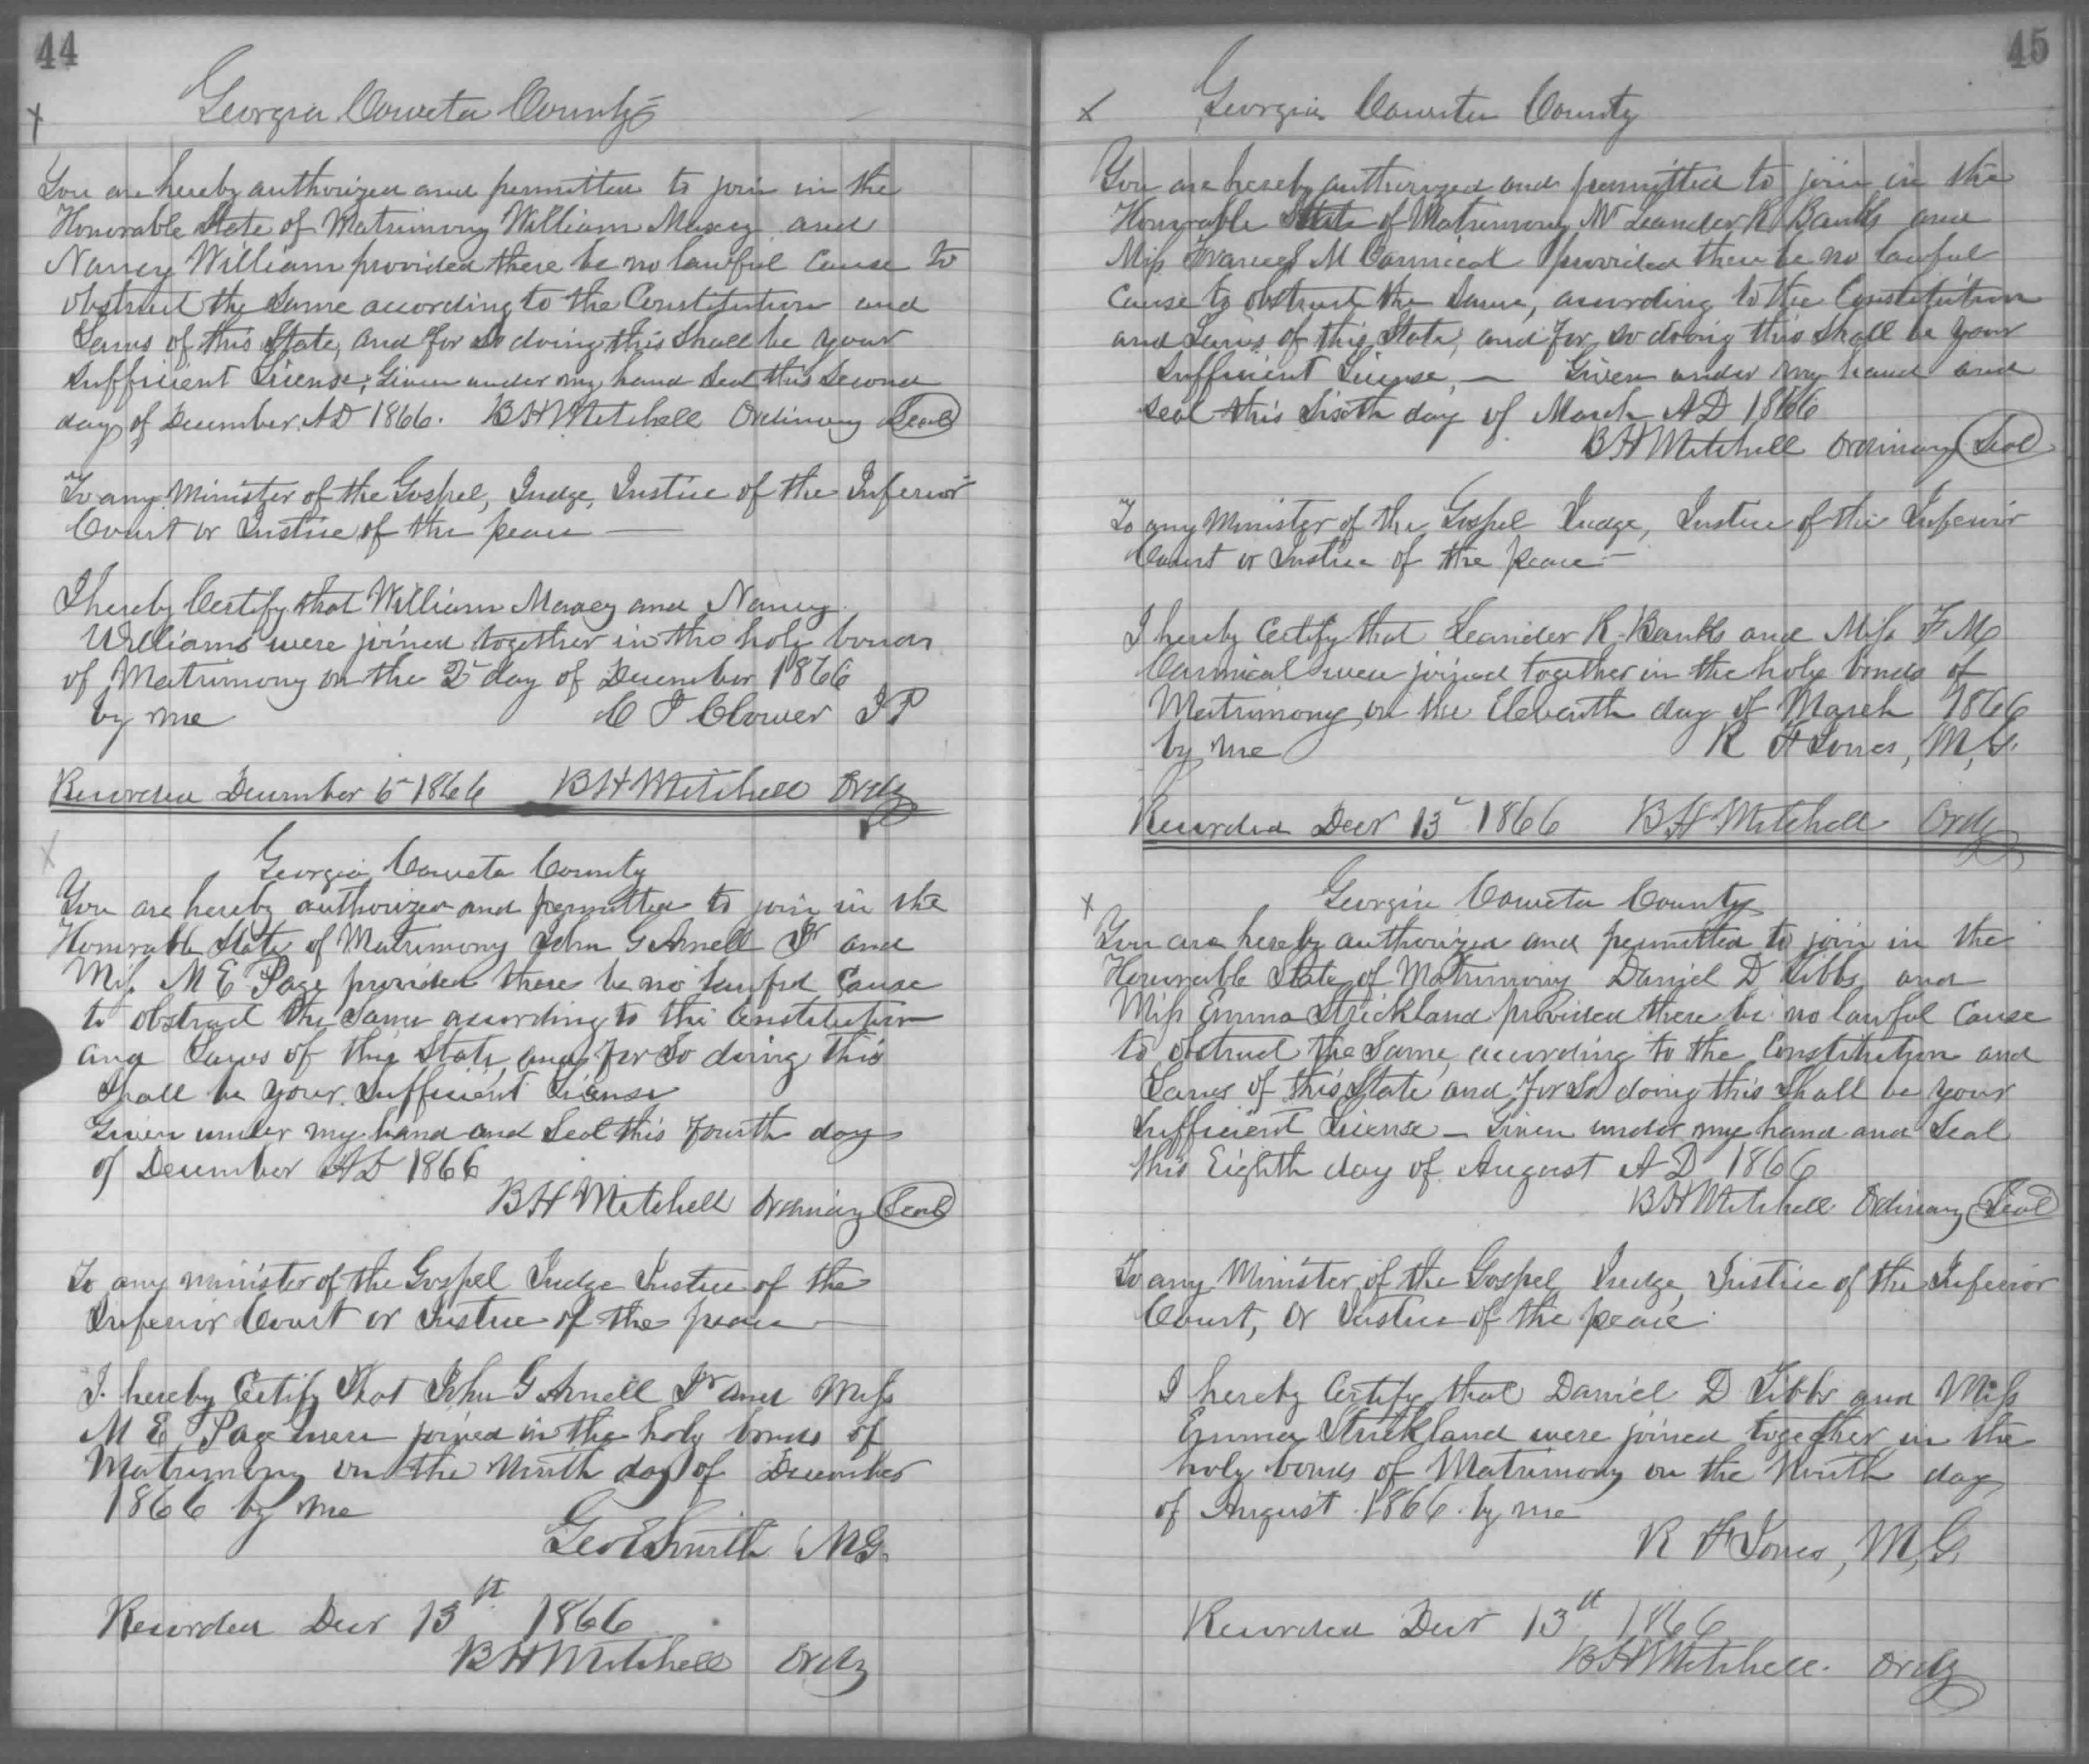 44
Georgia Coweta County
You are hereby authorized and permitted to join in the
Honorable State of Matrimony William Maxey and
Nancy William provided there be no lawful cause to
obstruct the same according to the Constitution and
Laws of this State, and for so doing this shall be your
sufficient License, Given under my hand Seal this Second
day of December AD 1866. B H Mitchell Ordinary Seal
To any Minister of the Gospel, Judge, Justice of the Inferior
Court or Justice of the peace —
I hereby Certify that William Maxey and Nancy
Williams were joined together in the holy bonds
of Matrimony on the 2 day of December 1866
by me C J Clower J P
Recorded December 6 1866 B H Mitchell Ordy
Georgia Coweta County
You are hereby authorized and permitted to join in the
Honorable State of Matrimony John G Arnell Jr and
Miss M E Page provided there be no lawful Cause
to obstruct the same according to the Constitution
and Laws of this State, and for so doing this
shall be your Sufficient License
Given under my hand and Seal this fourth day
of December AD 1866
B H Mitchell Ordinary Seal
To any minister of the Gospel Judge Justice of the
Inferior Court or Justice of the peace —
I hereby Certify that John G Arnell Jr and Miss
M E Page were joined in the holy bonds of
Matrimony on the Ninth day of December
1866 by me
Geo E Smith MG.
Recorded Decr 13th 1866
B H Mitchell Ordy
45
Georgia Coweta County
You are hereby authorized and permitted to join in the
Honorable State of Matrimony Mr Leander R Banks and
Miss Frances M Carmical provided there be no lawful
cause to obstruct the same, according to the Constitution
and Laws of this State, and for so doing this shall be your
Sufficient License, — Given under my hand and
seal this Sixth day of March AD 1866
B H Mitchell Ordinary Seal
To any Minister of the Gospel Judge, Justice of the Inferior
Court or Justice of the peace —
I hereby certify that Leander R. Banks and Miss F M
Carmical were joined together in the holy bonds of
Matrimony on the Eleventh day of March 1866
by me R F Jones, M, G.
Recorded Decr 13 1866 B H Mitchell Ordy
Georgia Coweta County
You are hereby authorized and permitted to join in the
Honorable State of Matrimony Daniel D Tibbs and
Miss Emma Strickland provided there be no lawful Cause
to obstruct the Same, according to the Constitution and
Laws of this State and for So doing this Shall be your
Sufficient License — Given under my hand and Seal
this Eighth day of August AD 1866
B H Mitchell Ordinary Seal
To any Minister of the Gospel, Judge, Justice of the Inferior
Court, or Justice of the peace
I hereby Certify that Daniel D Tibbs and Miss
Emma Strickland were joined together in the
holy bonds of Matrimony on the Ninth day
of August 1866 by me
R F Jones, M, G.
Recorded Decr 13th 1866
B H Mitchell. Ordy